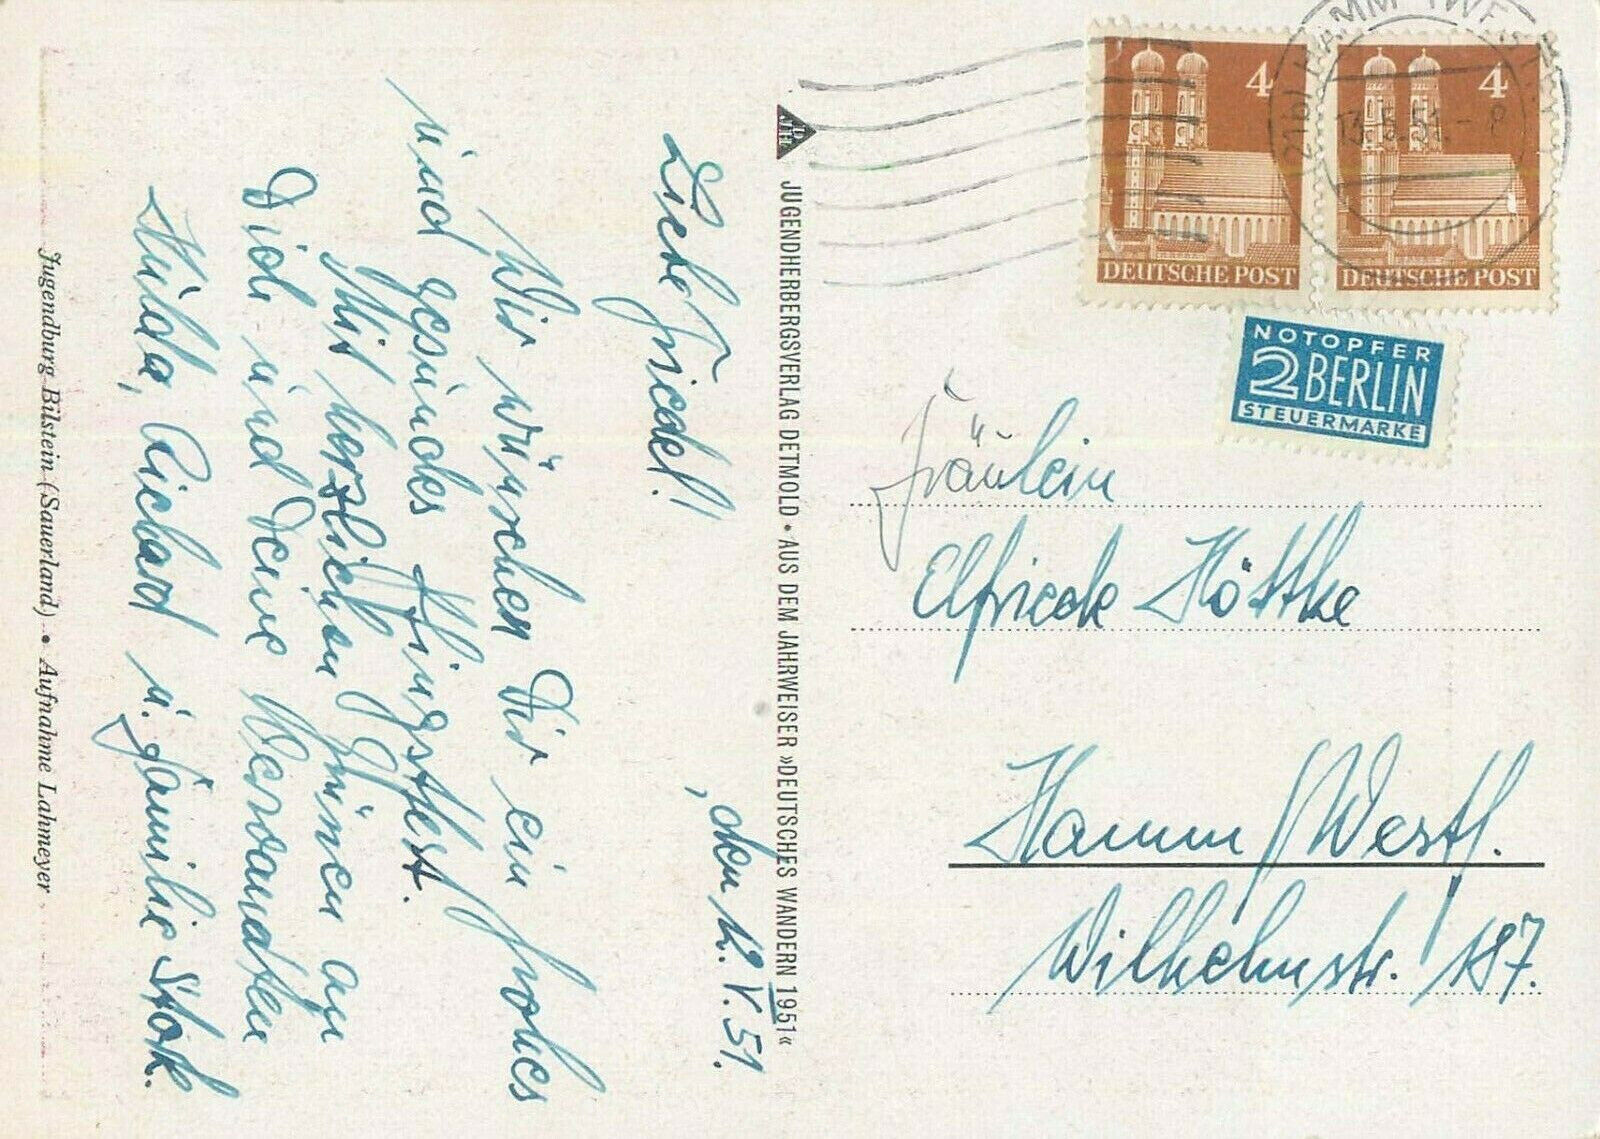 , den 12.V.51.
Liebe Friedel!
Wir wünschen Dir ein frohes
und gesundes Pfingstfest.
Mit herzlichen Grüßen an
Dich und Deine Verwandten
Hilda, Richard u. Familie Stok.
Jugendburg Bilstein (Sauerland) • Aufnahme Lahmeyer
DJH
JUGENDHERBERGSVERLAG DETMOLD · AUS DEM JAHRWEISER »DEUTSCHES WANDERN 1951«
4
DEUTSCHE POST
4
DEUTSCHE POST
HAMM (WESTF
13.5.51.-8
NOTOPFER
2 BERLIN
STEUERMARKE
Fräulein
Elfriede Höttke
Hamm/Westf.
Wilhelmstr. 187.